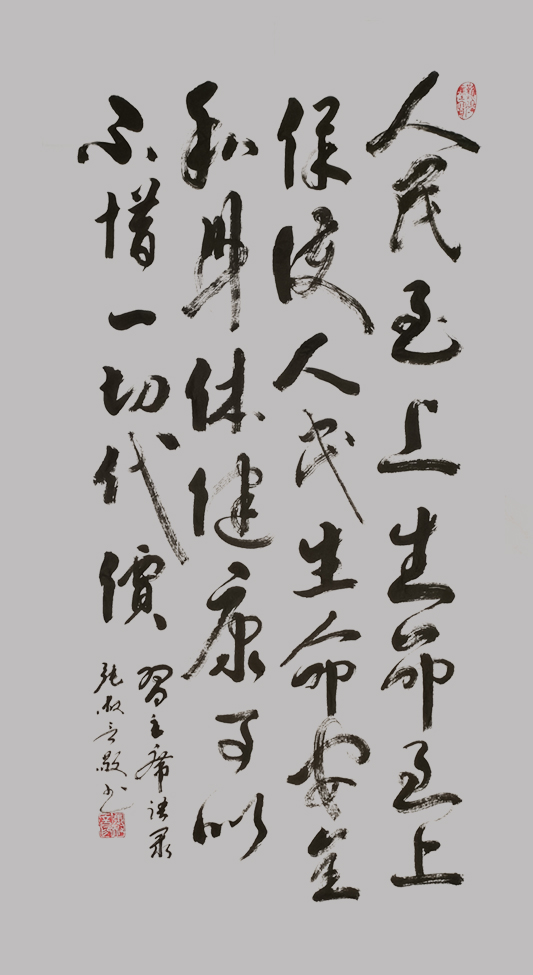 人民至上生命至上
保護人民生命安全
和身体健康可以
不惜一切代價
習主席語录
敬書